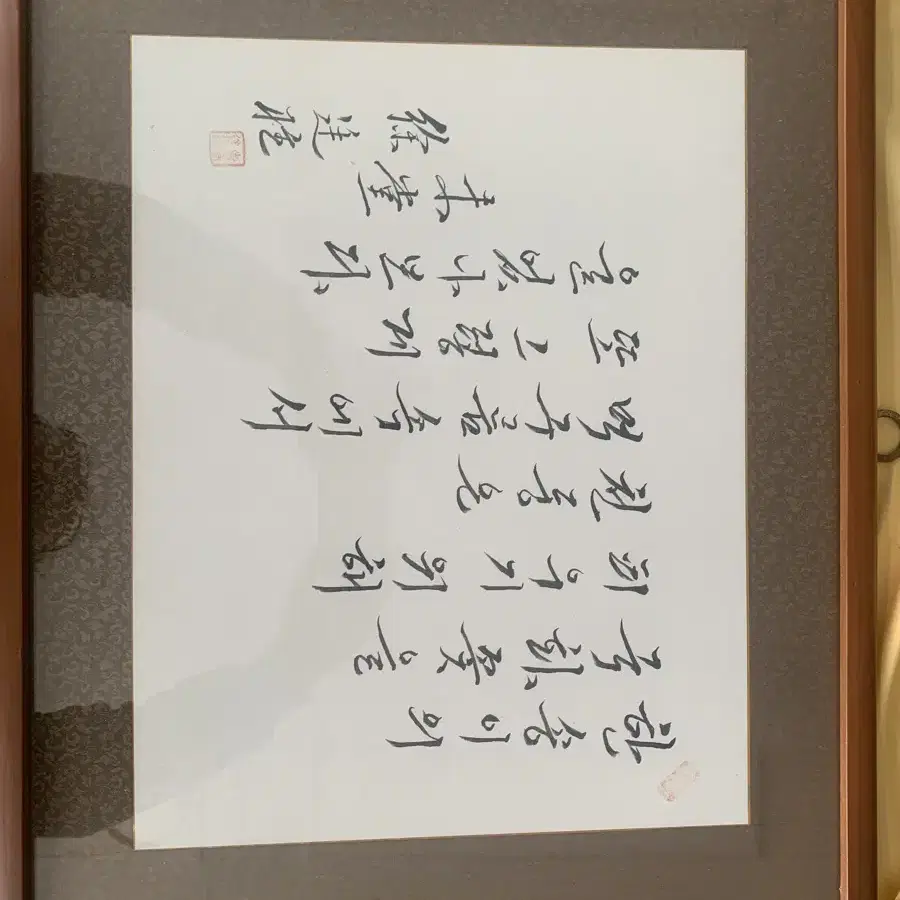 한송이의
국화꽃을
피우기위해
천둥은
먹구름속에서
또그렇게
울었나보다.
未堂
徐廷柱